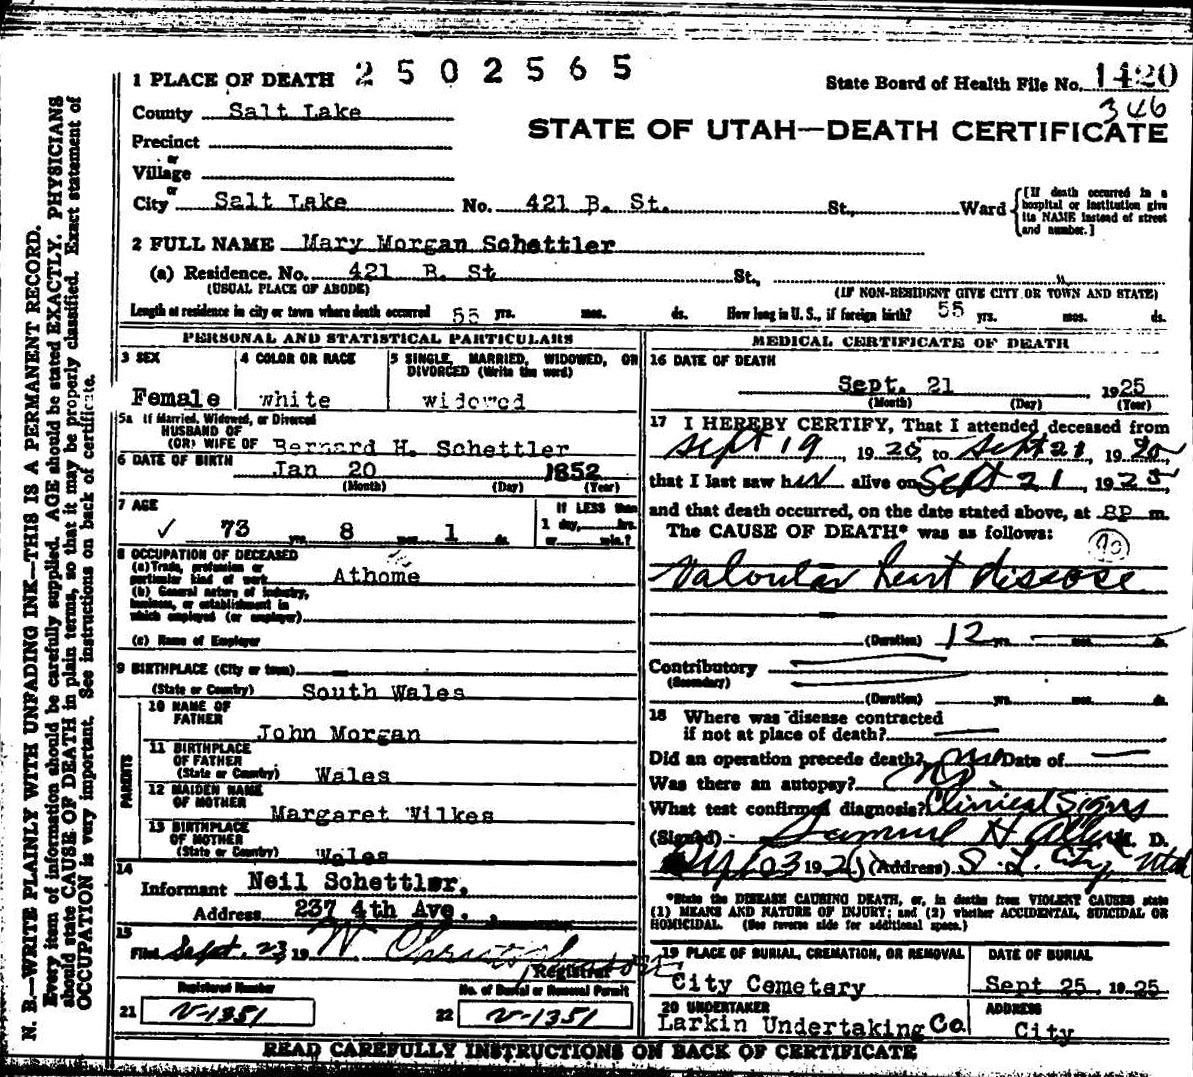 1 PLACE OF DEATH 2502565
State Board of Health File No. 1420
346
County Salt Lake
STATE OF UTAH—DEATH CERTIFICATE
Precinct
or
Village
or
City Salt Lake No. 421 B. St. St., Ward
[If death occurred in a hospital or institution give its NAME instead of street and number.]
2 FULL NAME Mary Morgan Schettler
(a) Residence. No. 421 B. St St.,
(USUAL PLACE OF ABODE) (IF NON-RESIDENT GIVE CITY OR TOWN AND STATE)
Length of residence in city or town where death occurred 55 yrs. mos. ds. How long in U. S., if foreign birth? 55 yrs. mos. ds.
PERSONAL AND STATISTICAL PARTICULARS
3 SEX
Female
4 COLOR OR RACE
white
5 SINGLE, MARRIED, WIDOWED, OR
DIVORCED (Write the word)
widowed
5a If Married, Widowed, or Divorced
HUSBAND OF
(OR) WIFE OF Bernard H. Schettler
6 DATE OF BIRTH Jan 20 1852
(Month) (Day) (Year)
7 AGE
73 yrs. 8 mos. 1 ds.
If LESS than
1 day, hrs.
or min.?
8 OCCUPATION OF DECEASED
(a) Trade, profession or
particular kind of work Athome
(b) General nature of industry,
business, or establishment in
which employed (or employer)
(c) Name of Employer
9 BIRTHPLACE (City or town)
(State or Country) South Wales
PARENTS
10 NAME OF
FATHER
John Morgan
11 BIRTHPLACE
OF FATHER
(State or Country) Wales
12 MAIDEN NAME
OF MOTHER
Margaret Wilkes
13 BIRTHPLACE
OF MOTHER
(State or Country) Wales
14
Informant Neil Schettler.
Address 237 4th Ave.
15
Filed Sept. 23 19
Registrar
Registered Number
21 V-1351
No. of Burial or Removal Permit
22 V-1351
MEDICAL CERTIFICATE OF DEATH
16 DATE OF DEATH
Sept. 21 1925
(Month) (Day) (Year)
17 I HEREBY CERTIFY, That I attended deceased from
Sept 19, 1925, to Sept 21, 1925,
that I last saw her alive on Sept 21, 1925,
and that death occurred, on the date stated above, at 8P m.
The CAUSE OF DEATH* was as follows:
90
Valvular heart disease
(Duration) 12 yrs. mos. ds.
Contributory
(Secondary)
(Duration) yrs. mos. ds.
18 Where was disease contracted
if not at place of death?
Did an operation precede death? no Date of
Was there an autopsy? no
What test confirmed diagnosis? Clinical Signs
(Signed) Samuel H Allen M. D.
Sept 23 1925 (Address) S. L. City, Utah
*State the DISEASE CAUSING DEATH, or, in deaths from VIOLENT CAUSES state
(1) MEANS AND NATURE OF INJURY; and (2) whether ACCIDENTAL, SUICIDAL OR
HOMICIDAL. (See reverse side for additional space.)
19 PLACE OF BURIAL, CREMATION, OR REMOVAL
City Cemetary
DATE OF BURIAL
Sept 25, 1925
20 UNDERTAKER
Larkin Undertaking Co.
ADDRESS
City
READ CAREFULLY INSTRUCTIONS ON BACK OF CERTIFICATE
N. B.—WRITE PLAINLY WITH UNFADING INK—THIS IS A PERMANENT RECORD.
Every item of information should be carefully supplied. AGE should be stated EXACTLY. PHYSICIANS
should state CAUSE OF DEATH in plain terms, so that it may be properly classified. Exact statement of
OCCUPATION is very important. See instructions on back of certificate.